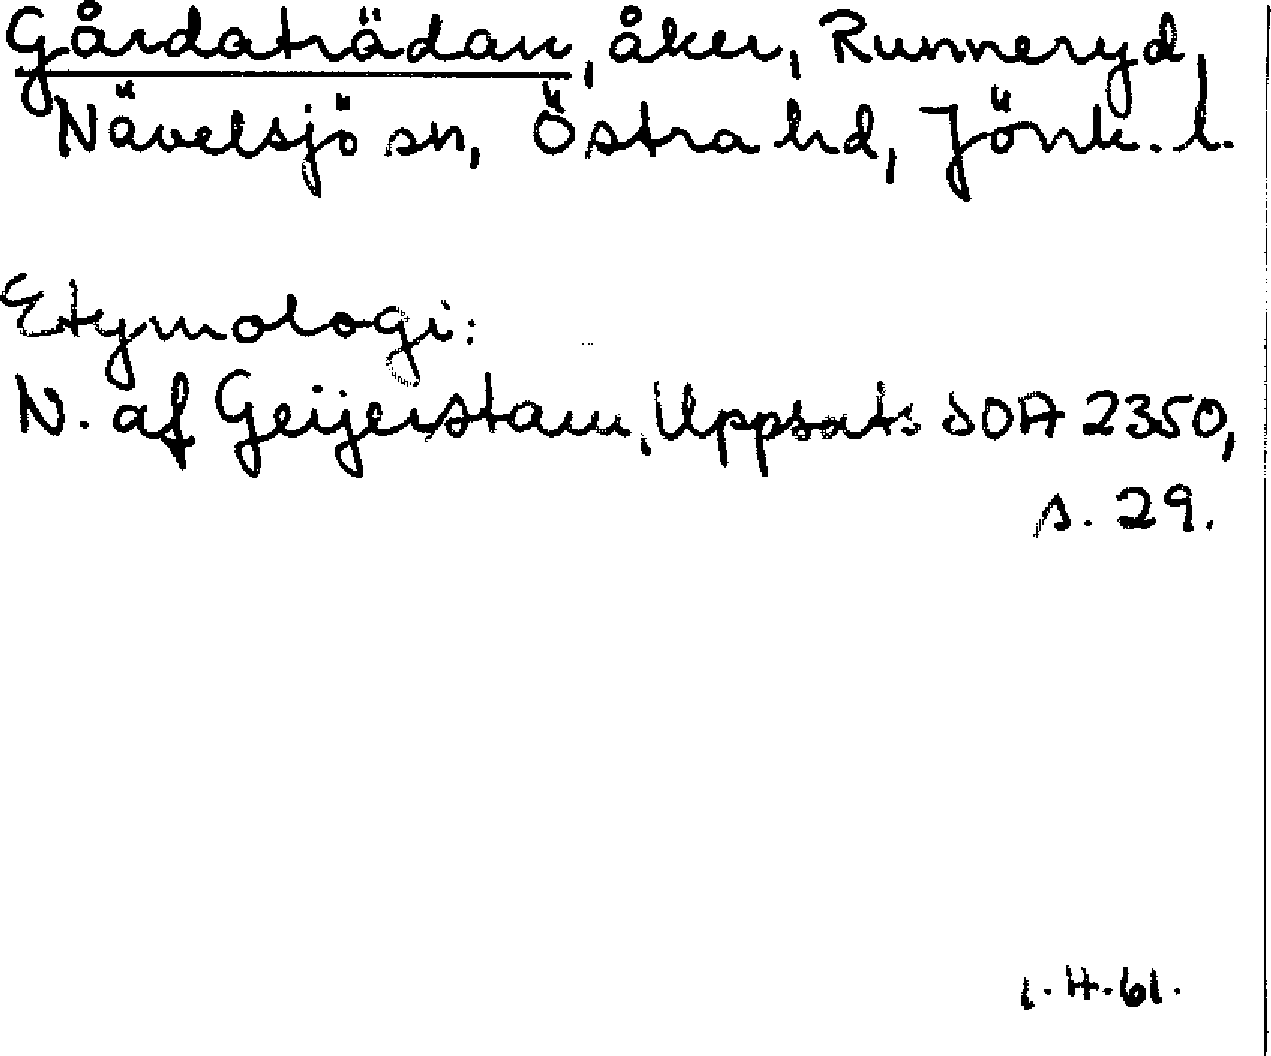 Gårdaträdan, åker, Runneryd,
Nävelsjö sn, Östra hd, Jönk. l.
Etymologi:
N. af Geijerstam, Uppsats SOA 2350,
s. 29.
1.4.61.